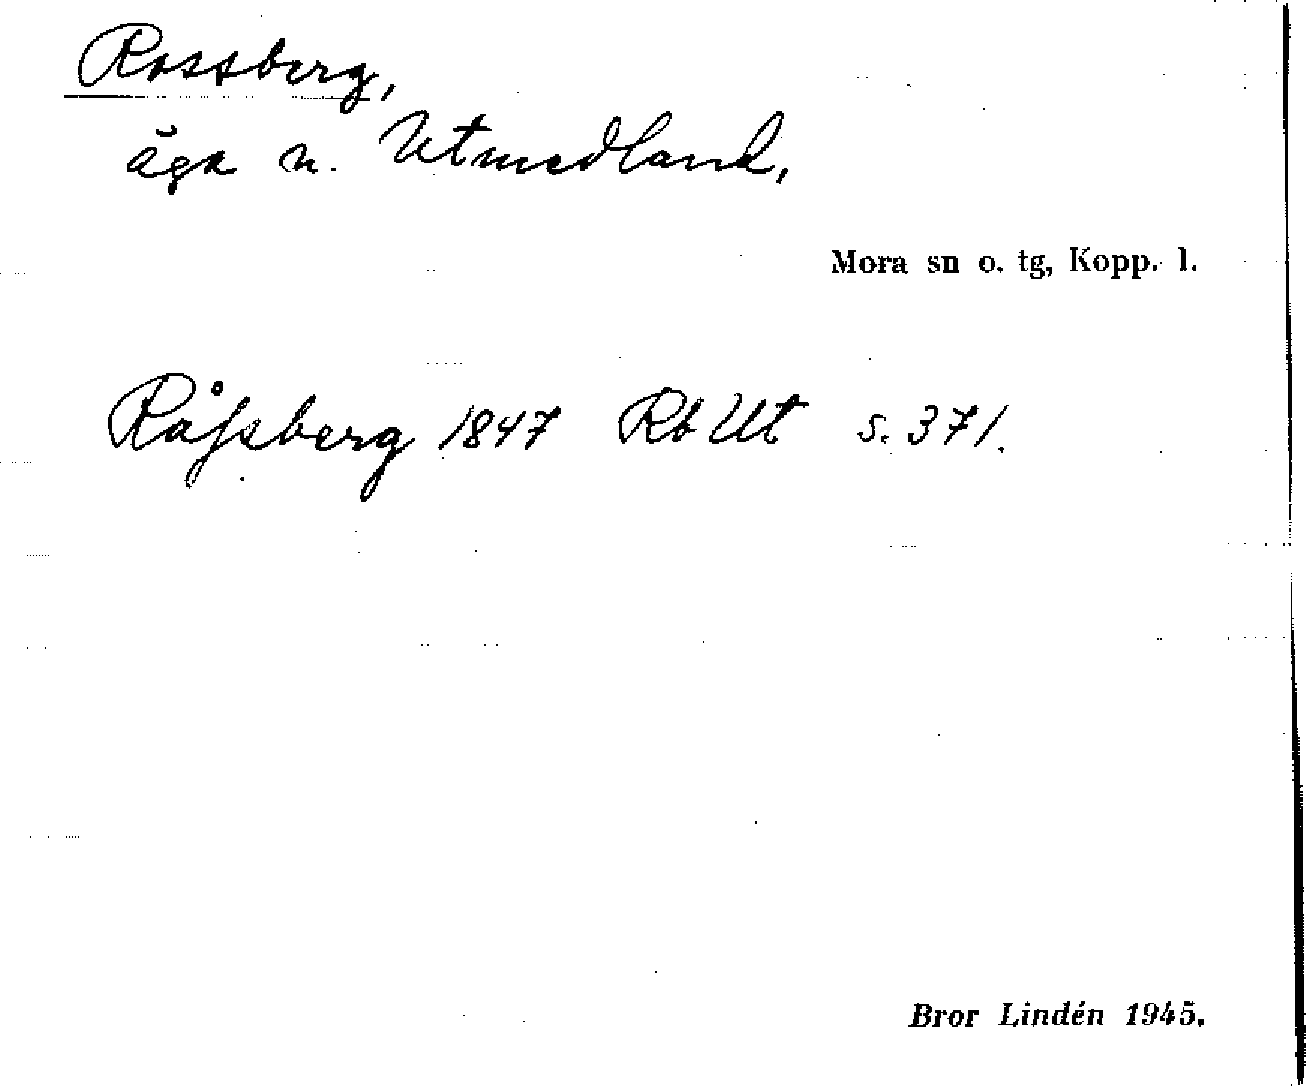 Rossberg,
äga n. Utmedland,
Mora sn o. tg, Kopp. l.
Råssberg 1847 Rb Ut s. 371.
Bror Lindén 1945.